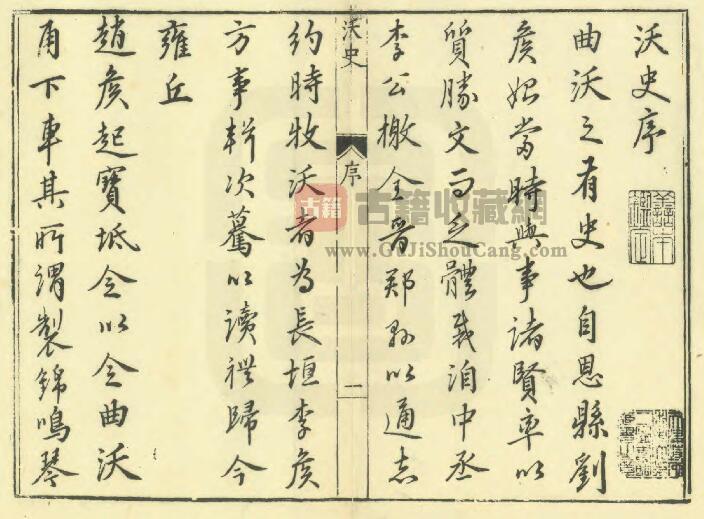 沃史序
曲沃之有史也自恩縣劉
侯始當時與事諸賢率以
質勝文而之體裁洎中丞
李公檄全晋郑縣以通志
沃史
序
一
約時牧沃者為長垣李侯
方事輯次驀以讀禮歸今
雍丘
趙侯起寶坻令以令曲沃
甫下車其所謂製錦鳴琴
古籍
古籍收藏網
www.GuJiShouCang.com